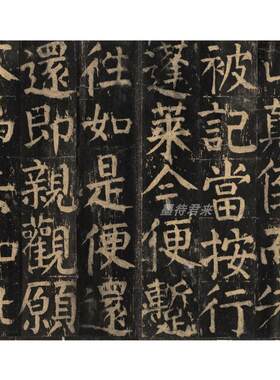 被記當按行
蓬萊今便蹔
往如是便還
還即親觀願
墨待君来